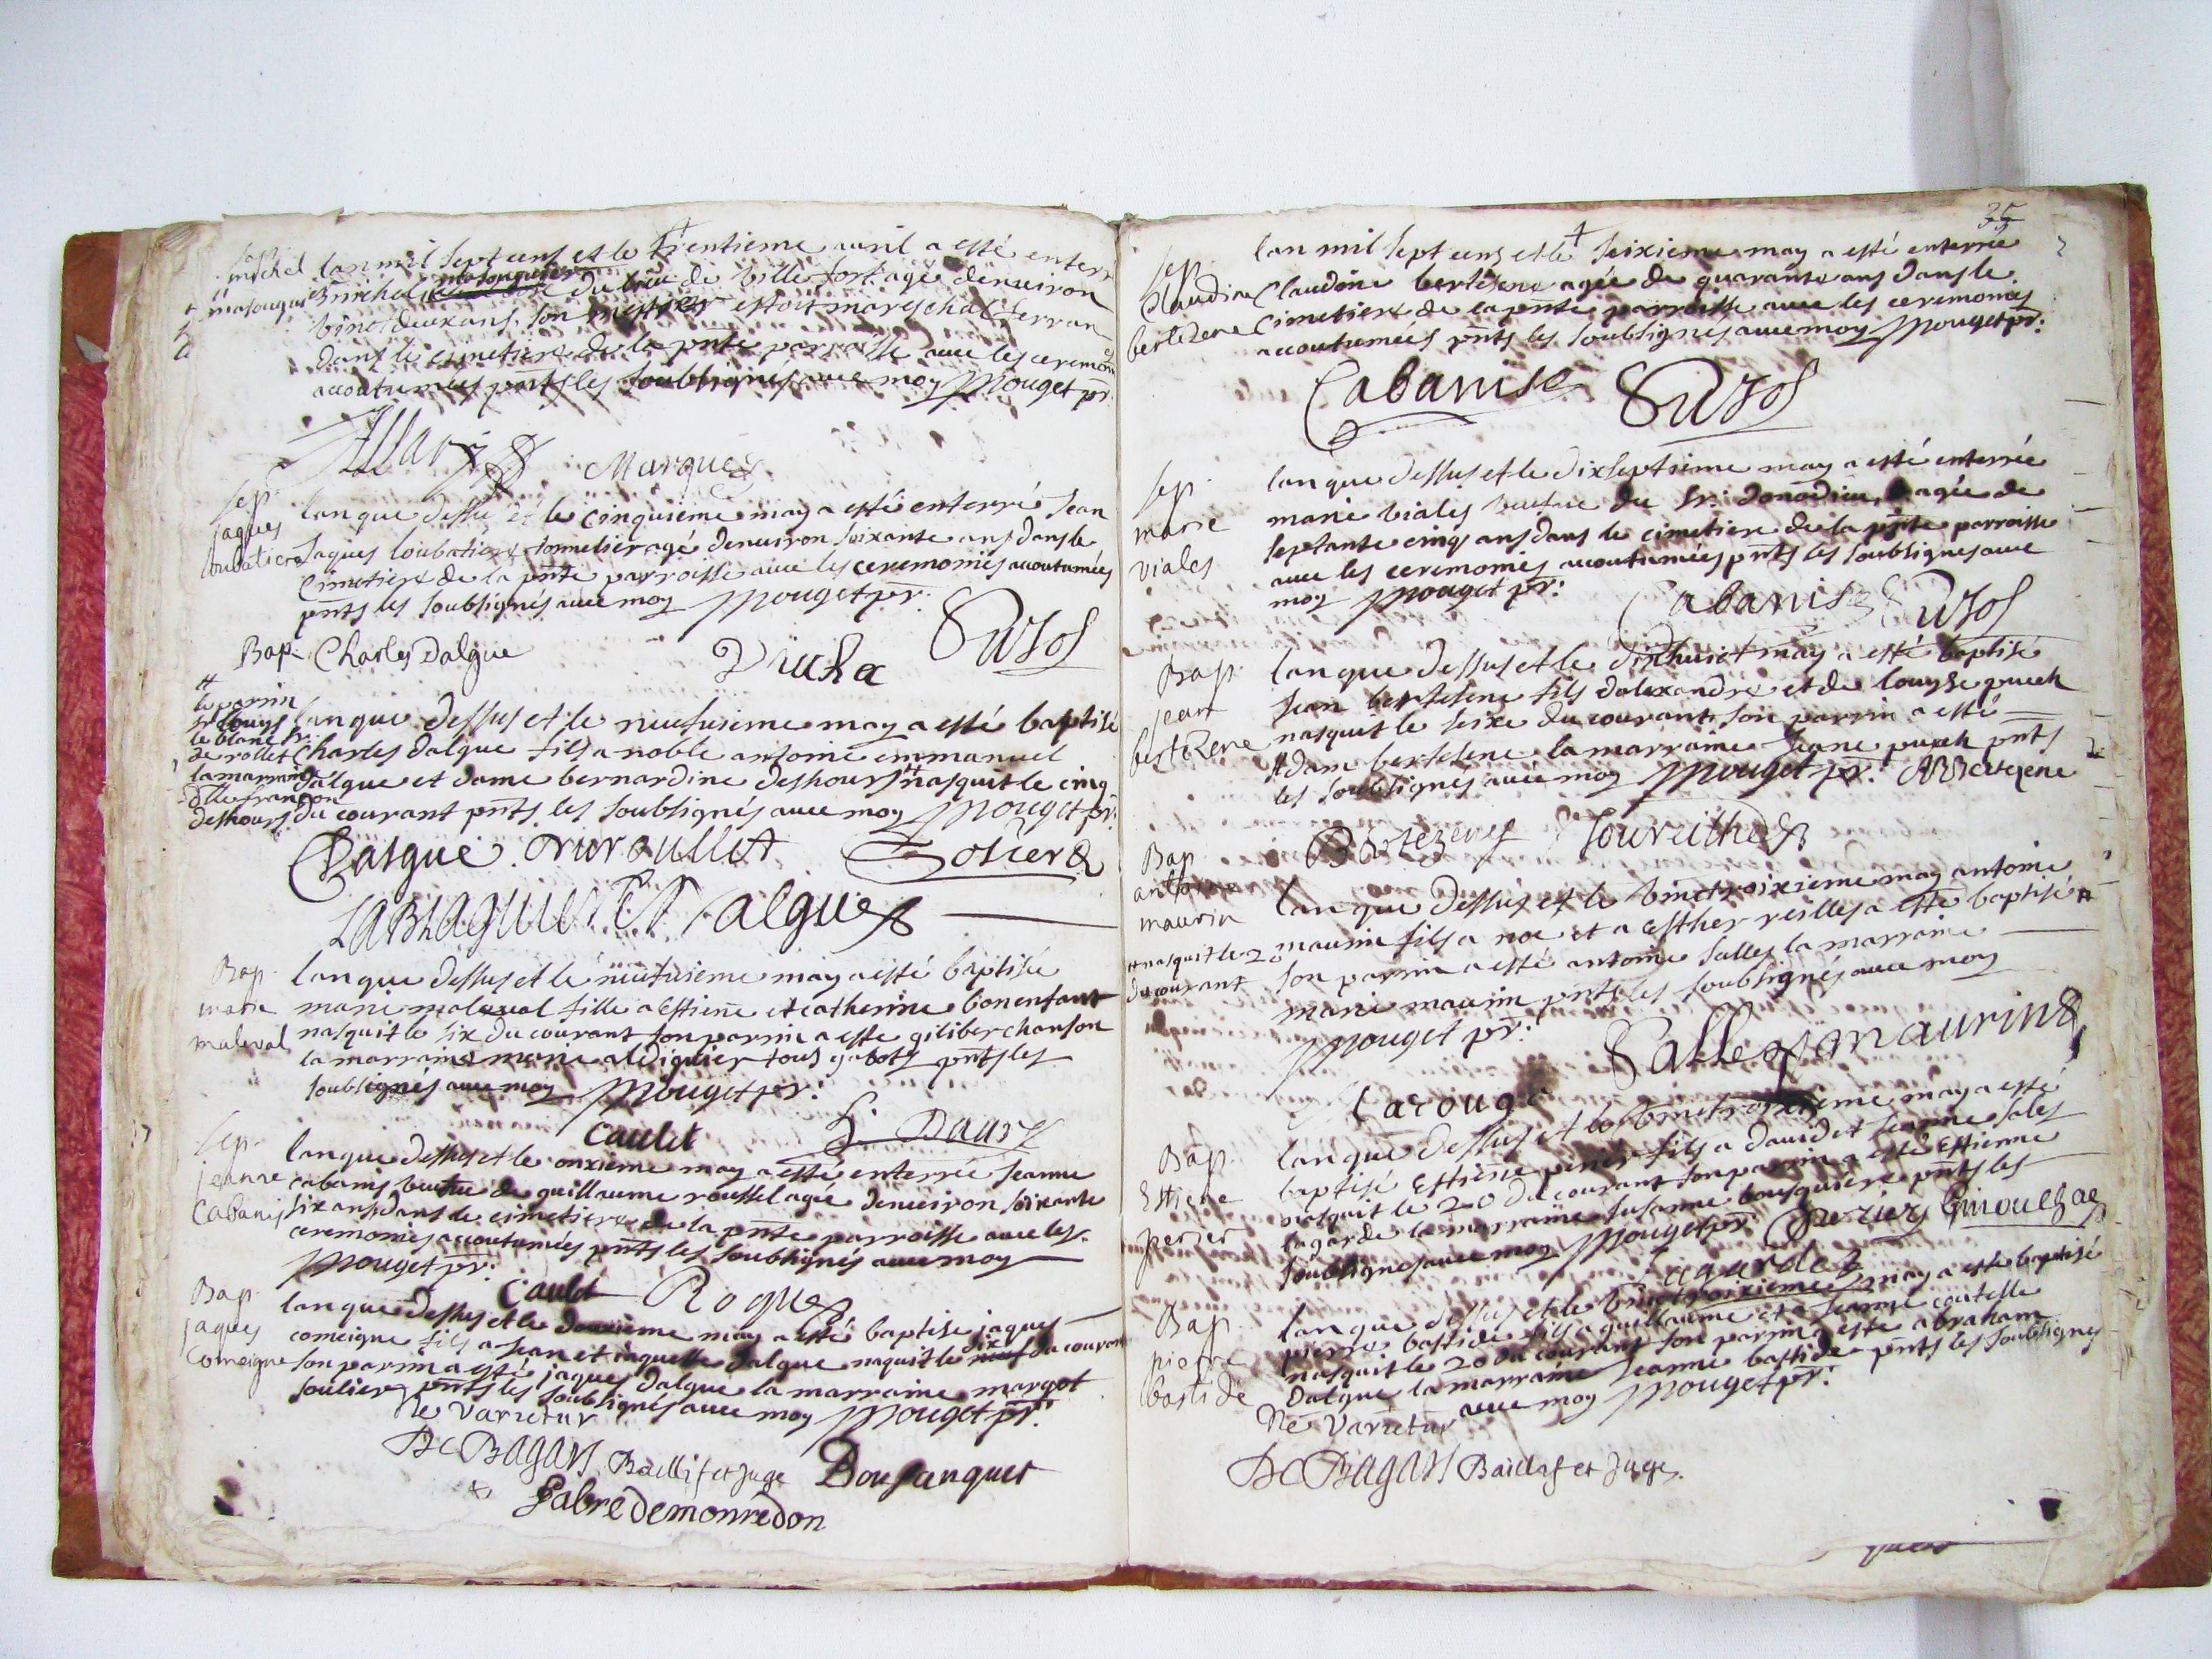 Sep.
michel
masouguie
lan mil sept cens et le trentieme auril a esté enterré
michel masouguier du lieu de ville fort agé denuiron
vinct deux ans son mestier estoit mareschal ferran
dans le cimetiere de la pnte parroisse auec les ceremonies
accoutumées pnts les soubsignés auec moy Mouget pr.
Allary Marques
Sep.
jaques
loubatiere
lan que dessus et le cinquieme may a esté enterré Jean
Jaques loubatiere tonnelier agé denuiron soixante ans dans le
cimetiere de la pnte parroisse auec les ceremonies accoutumées
pnts les soubsignés auec moy Mouget pr.
Suzol
Bap. Charles Dalgue
le parrin
sr louys
le blanc sr.
de rollet
la marraine
dlle françon
deshours
lan que dessus et le neufuieme may a esté baptisé
Charles dalgue fils a noble antoine emmanuel
dalgue et dame bernardine deshours nasquit le cinq
du courant pnts les soubsignés auec moy Mouget pr.
Bap.
marie
maleval
lan que dessus et le neufuieme may a esté baptisée
marie maleval fille a Estiene et catherine bonenfant
nasquit le six du courant son parrin a este giliber chanson
la marraine marie aldiguier tous gabots pnts les
soubsignés auec moy Mouget pr.
Caulet
Sep.
jeanne
Cabanis
lan que dessus et le onzieme may a esté enterrée Jeanne
cabanis veufue de guillaume roussel agée denuiron soixante
six ans dans le cimetiere de la pnte parroisse auec les
ceremonies accoutumées pnts les soubsignés auec moy
Mouget pr.
Caulet Roques
Bap.
jaques
Comeigne
lan que dessus et le douzieme may a esté baptise jaques
comeigne fils a Jean et jaquette dalgue naquit le dix du courant
son parrin a esté jaques dalgue la marraine margot
soulier pnts les soubsignés auec moy Mouget pr.
Ne Varietur
De Bagars Baillif et juge Bousanquet
Fabre de monredon
35
Sep.
Claudine
bertezene
lan mil sept cens et le seixieme may a esté enterrée
Claudine bertezene agée de quarante ans dans le
cimetiere de la pnte parroisse auec les ceremonies
accoutumées pnts les soubsignés auec moy Mouget pr.
Cabanis Suzol
Sep.
marie
viales
lan que dessus et le dixseptieme may a esté enterrée
marie viales veufue du sr. donadieu agée de
septante cinq ans dans le cimetiere de la pnte parroisse
auec les ceremonies accoutumées pnts les soubsignes auec
moy Mouget pr.
Cabanis Suzol
Bap.
jean
bertezene
lan que dessus et le dixhuict may a esté baptisé
Jean bertesene fils dalexandre et de louyse puech
nasquit le seixe du courant son parrin a esté
Adam bertesene la marraine Jeane puech pnts
les soubsignés auec moy Mouget pr.
Bertezene Soureilhe
Bap.
antoine
maurin
nasquit le 20
du courant
lan que dessus et le vinctroixieme may antoine
maurin fils a noe et a Esther reilles a esté baptisé
son parrin a esté antoine salles la marraine
marie maurin pnts les soubsignés auec moy
Mouget pr.
Salles maurin
Larouge
Bap.
Estiene
perier
lan que dessus et le vinctroixieme may a esté
baptisé Estiene perier fils a dauid et Jeanne sales
nasquit le 20 du courant son parrin a esté Estienne
lagarde la marraine susanne bousquiere pnts les
soubsignes auec moy Mouget pr. Perier Ginoulhac
Lagarde
Bap.
pierre
bastide
lan que dessus et le vinctroixieme may a este baptisé
pierre bastide fils a guillaume et a Jeanne coutelle
nasquit le 20 du courant son parrin a este abraham
dalgue la marraine Jeanne bastide pnts les soubsignes
auec moy Mouget pr.
Ne Varietur
De Bagars Baillif et Juge.